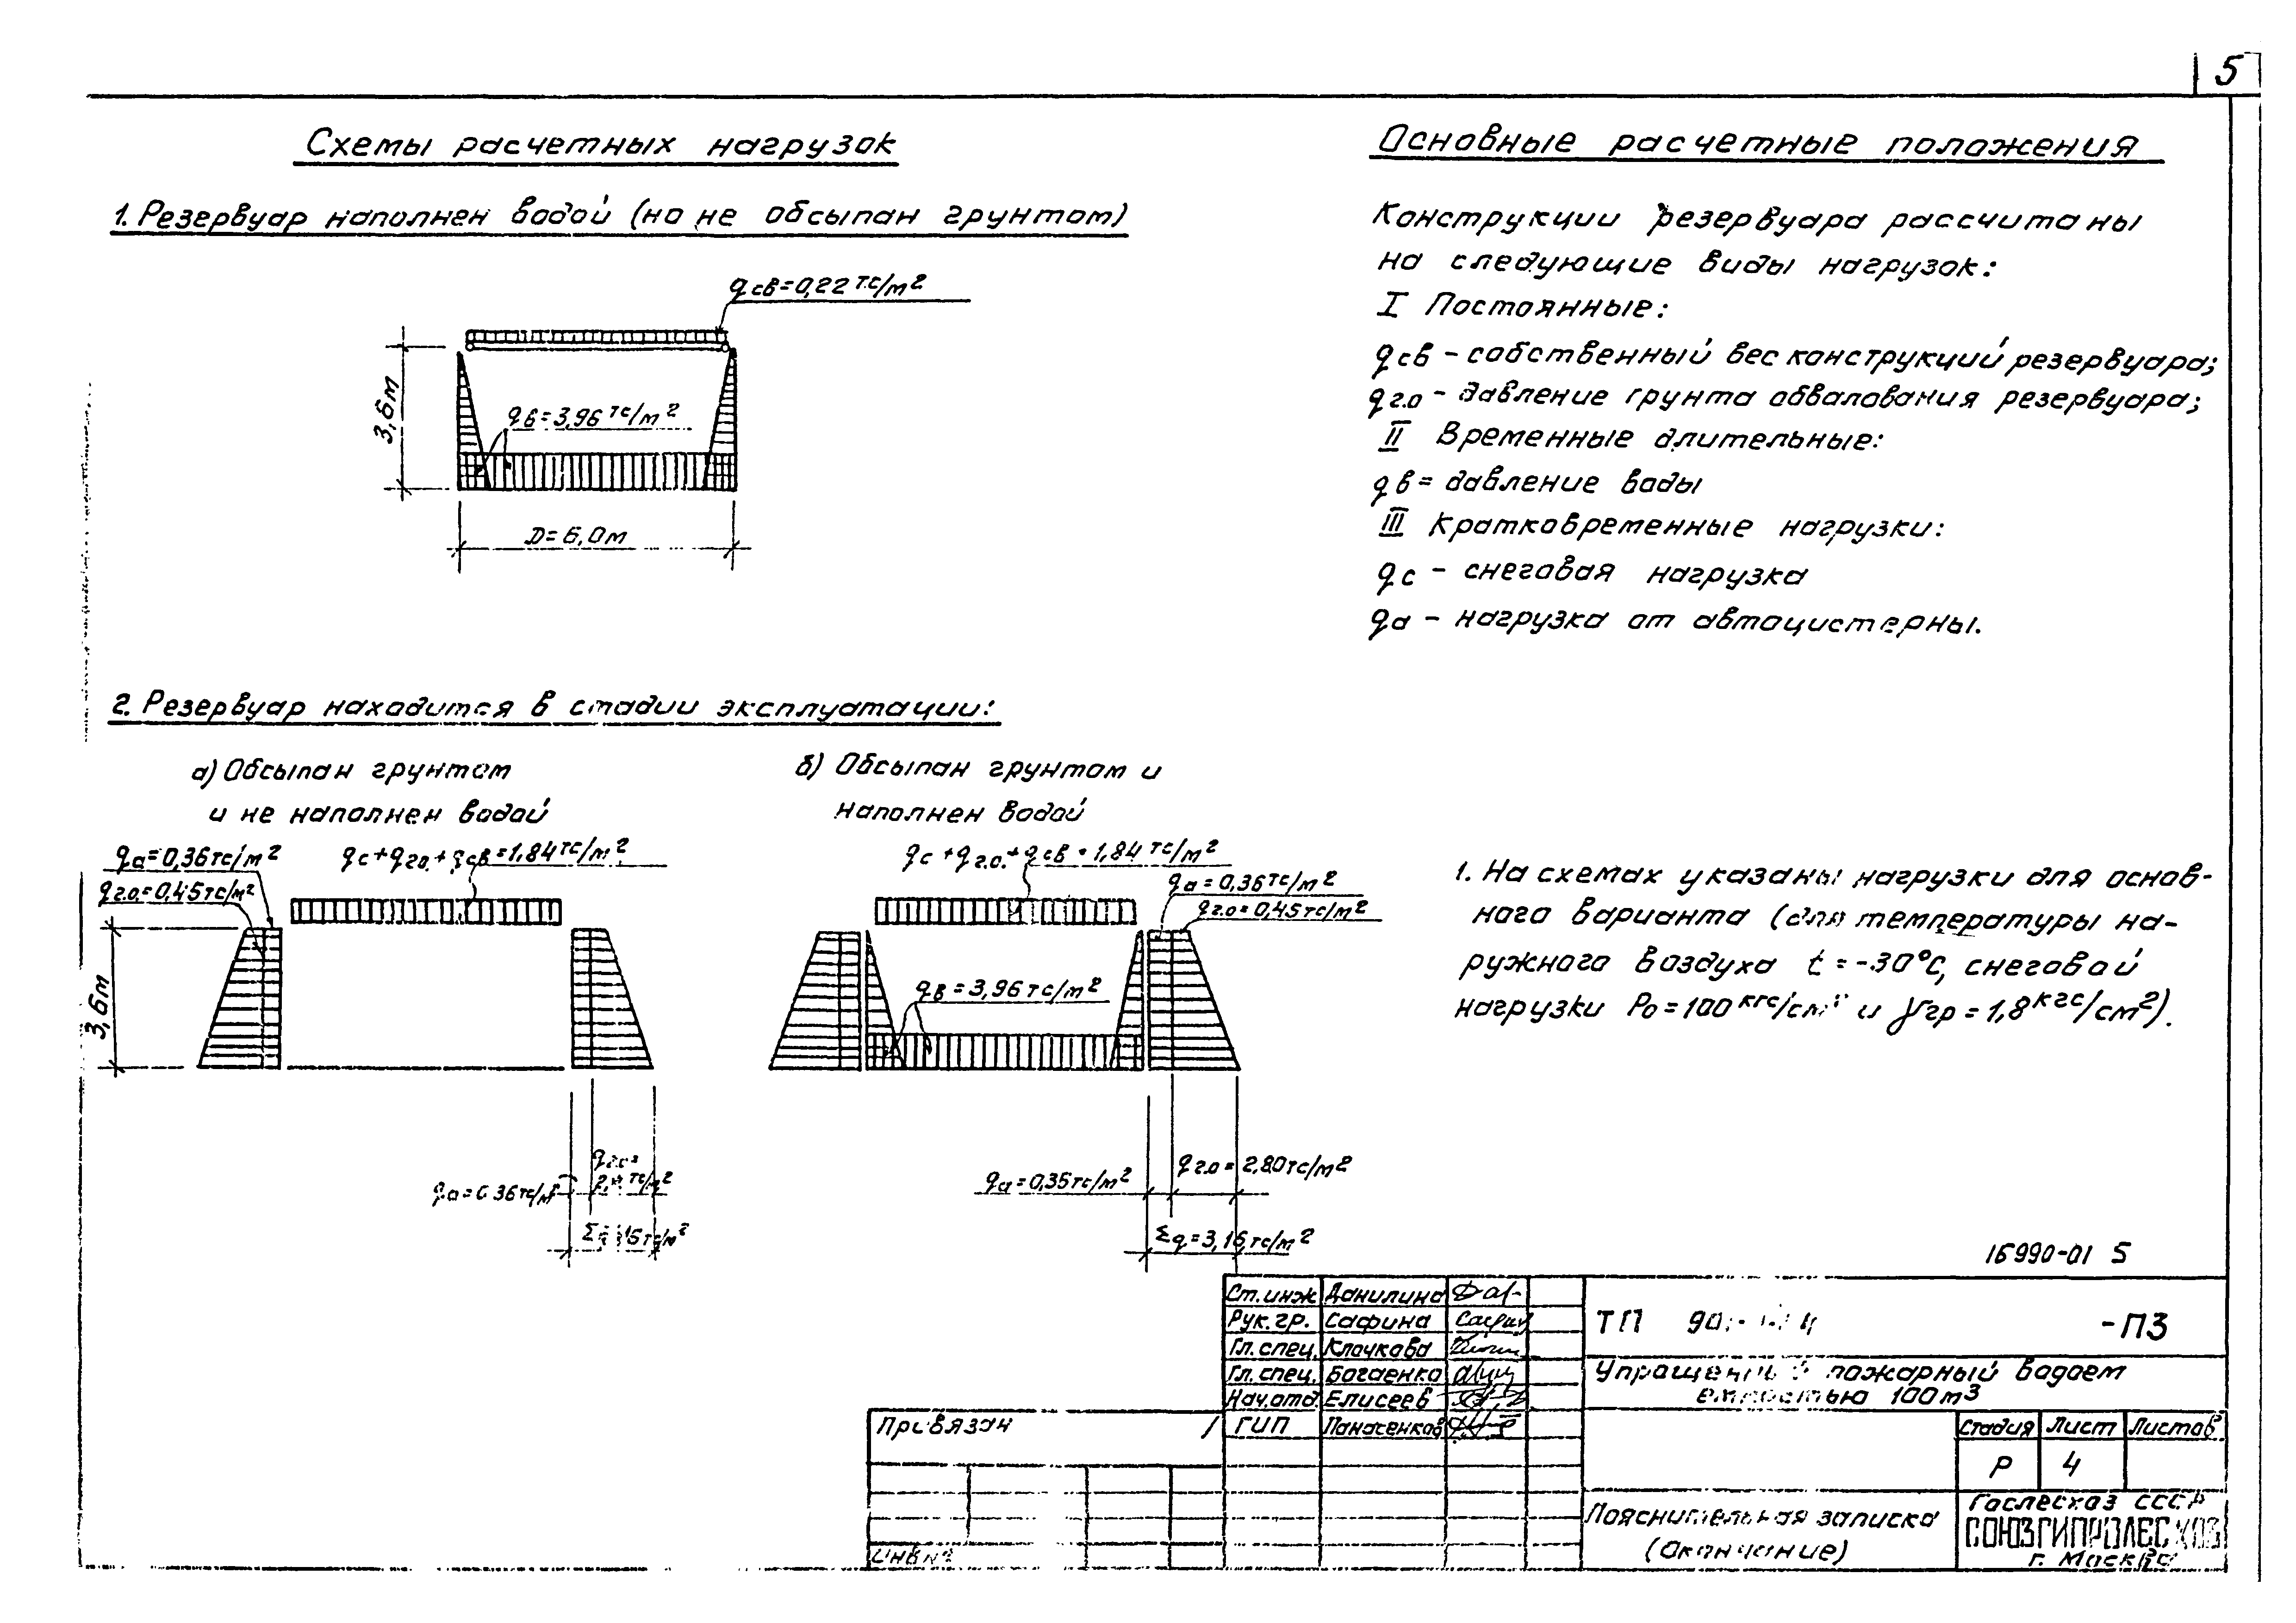 5
Схемы расчетных нагрузок
1. Резервуар наполнен водой (но не обсыпан грунтом)
qсв=0,22 тс/м²
3,6м
qв=3,96 тс/м²
D=6,0м
2. Резервуар находится в стадии эксплуатации:
а) Обсыпан грунтом
и не наполнен водой
qа=0,36 тс/м²
qг.о.=0,45 тс/м²
qс+qг.о.+qсв=1,84 тс/м²
3,6м
qа=0,36 тс/м²
qг.о=
тс/м²
б) Обсыпан грунтом и
наполнен водой
qс+qг.о.+qсв=1,84 тс/м²
qа=0,36 тс/м²
qг.о=0,45 тс/м²
qв=3,96 тс/м²
qа=0,35 тс/м²
qг.о=2,80 тс/м²
Σq=3,16 тс/м²
Основные расчетные положения
Конструкции резервуара рассчитаны
на следующие виды нагрузок:
I Постоянные:
qсв - собственный вес конструкций резервуара;
qг.о - давление грунта обвалования резервуара;
II Временные длительные:
qв= давление воды
III Кратковременные нагрузки:
qс - снеговая нагрузка
qа - нагрузка от автоцистерны.
1. На схемах указаны нагрузки для основ-
ного варианта (для температуры на-
ружного воздуха t=-30°С, снеговой
нагрузки Ро=100 кгс/см² и γгр=1,8 кгс/см²).
16990-01 5
Ст.инж Данилина
Рук.гр. Сафина
Гл.спец. Клочкова
Гл.спец. Богаенко
Нач.отд. Елисеев
ГИП Панасенков
Привязан
Инв №
ТП -ПЗ
Упрощенный пожарный водоем
емкостью 100м³
Стадия Лист Листов
Р 4
Пояснительная записка
(окончание)
Гослесхоз СССР
СОЮЗГИПРОЛЕСХОЗ
г. Москва